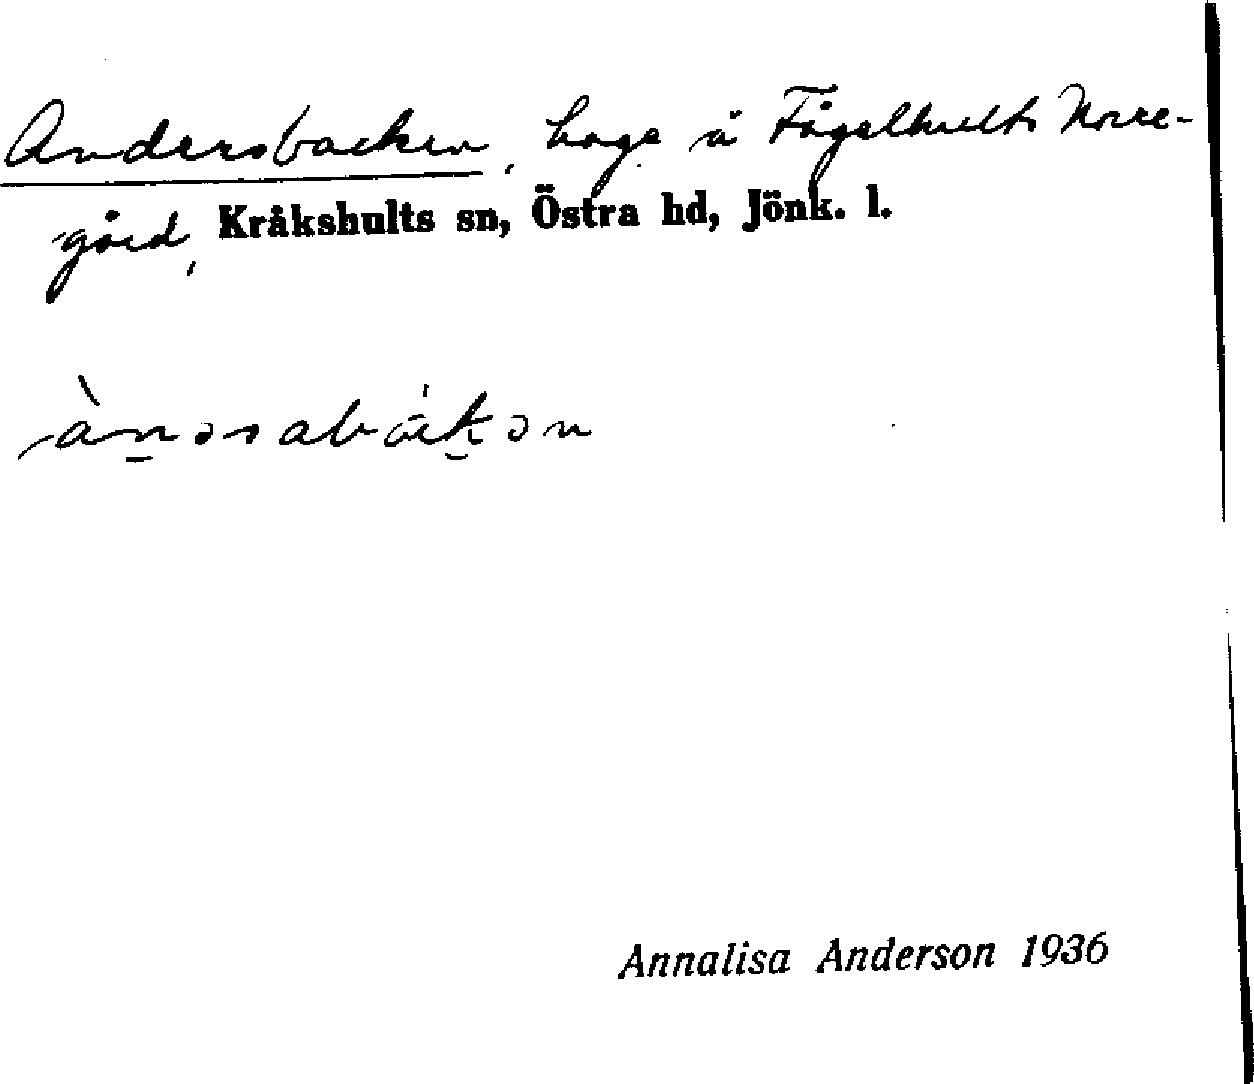 Andersbacken, hage å Fågelhults Norre-
gård, Kråkshults sn, Östra hd, Jönk. l.
Annalisa Anderson 1936